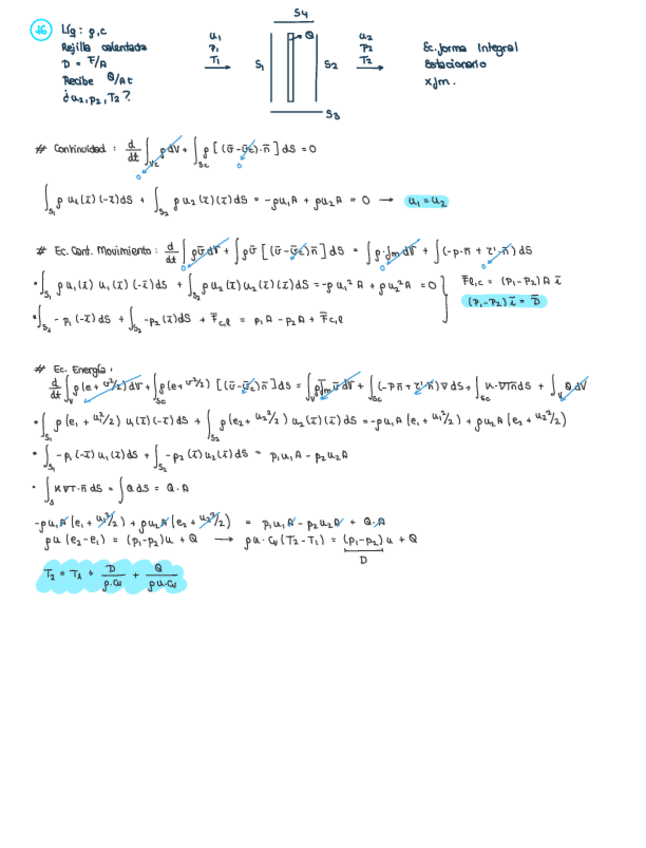 16 Líq: ρ,c
Rejilla calentada
D = F/A
Recibe Q/At
¿u₂, p₂, T₂?
u₁
p₁
T₁
S₄
Q
S₁
S₂
S₃
u₂
p₂
T₂
Ec. forma Integral
Estacionario
x fm.
# Continuidad: d/dt ∫_Vc ρdV + ∫_Sc ρ[(ū-ūc)·n̄]dS = 0
0 0
∫_S₁ ρ u₁(ī)(-ī)dS + ∫_S₂ ρ u₂(ī)(ī)dS = -ρu₁A + ρu₂A = 0 → u₁ = u₂
# Ec. Cant. Movimiento: d/dt ∫ρūdV + ∫ρū[(ū-ūc)n̄]dS = ∫ρ·f̄m dV + ∫(-p·n̄ + τ'·n̄)dS
0 0 0
· ∫_S₁ ρu₁(ī) u₁(ī)(-ī)dS + ∫_S₂ ρu₂(ī)u₂(ī)(ī)dS = -ρu₁²A + ρu₂²A = 0
F̄l,c = (p₁-p₂)A ī
(p₁-p₂)ī = D̄
· ∫ -p₁(-ī)dS + ∫ -p₂(ī)dS + F̄c,l = p₁A - p₂A + F̄c,l
# Ec. Energía:
d/dt ∫_V ρ(e+v²/2)dV + ∫_Sc ρ(e+v²/2)[(ū-ūc)n̄]dS = ∫_V ρf̄m ūdV + ∫_Sc (-pn̄+τ'n̄)v dS + ∫_Sc K·∇Tn̄dS + ∫_V Q dV
· ∫_S₁ ρ(e₁+u₁²/2)u₁(ī)(-ī)dS + ∫_S₂ ρ(e₂+u₂²/2)u₂(ī)(ī)dS = -ρu₁A(e₁+u₁²/2) + ρu₂A(e₂+u₂²/2)
· ∫_S₁ -p₁(-ī)u₁(ī)dS + ∫_S₂ -p₂(ī)u₂(ī)dS = p₁u₁A - p₂u₂A
· ∫_S K∇T·n̄ dS = ∫Q dS = Q·A
-ρu₁A(e₁+u₁²/2) + ρu₂A(e₂+u₂²/2) = p₁u₁A - p₂u₂A + Q·A
ρu(e₂-e₁) = (p₁-p₂)u + Q → ρu·cv(T₂-T₁) = (p₁-p₂)u + Q
D
T₂ = T₁ + D/ρ·cv + Q/ρu·cv